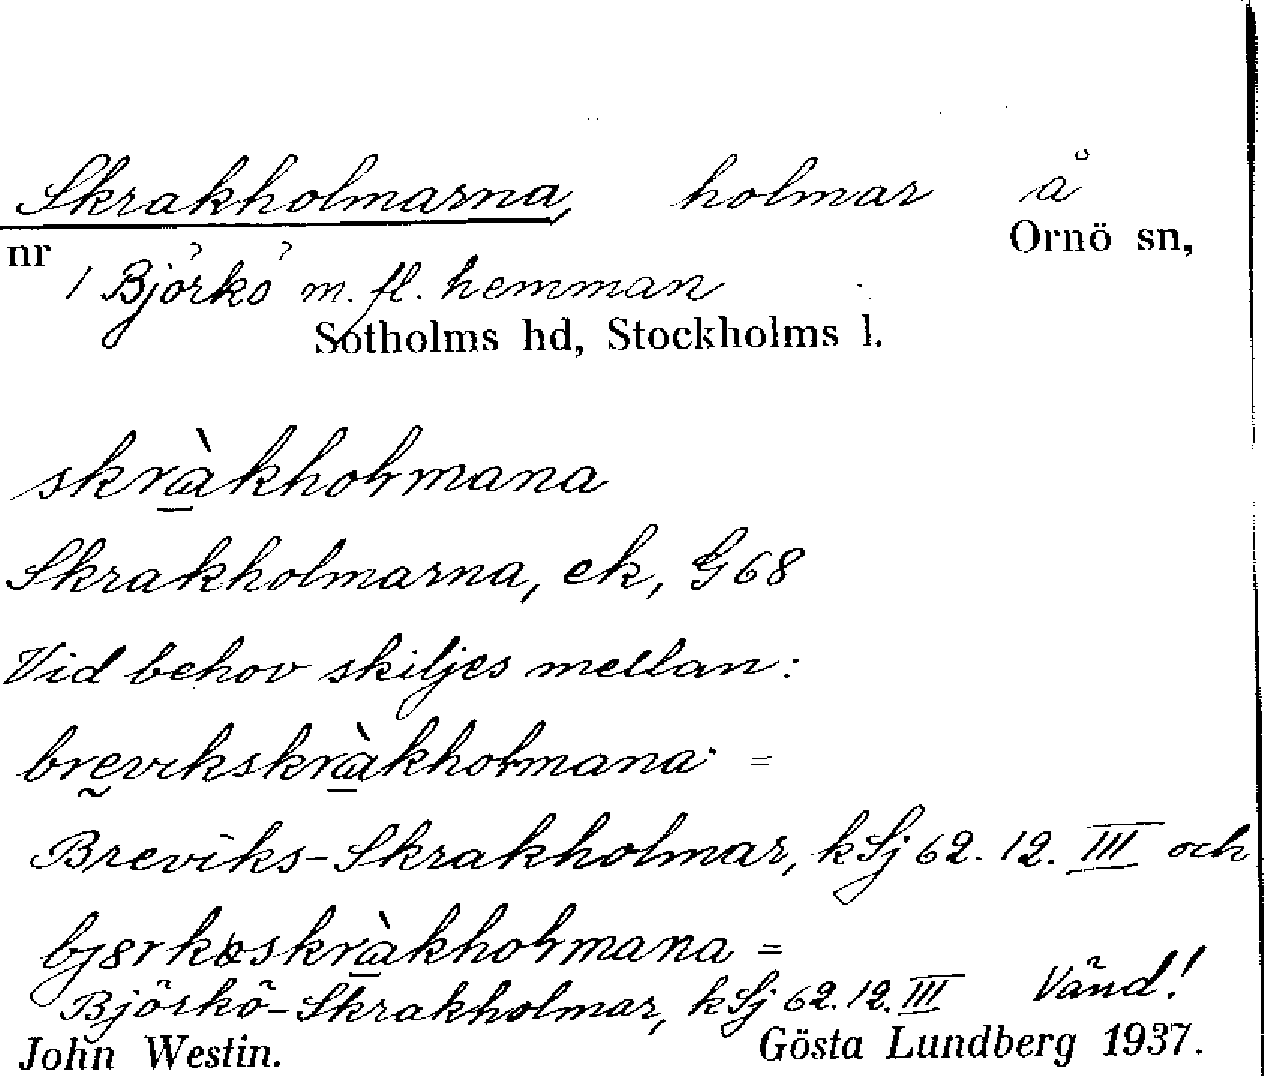 Skrakholmarna, holmar å
nr Ornö sn,
1 Björkö m. fl. hemman
Sotholms hd, Stockholms l.
skràkholmana
Skrakholmarna, ek, G 68
Vid behov skiljes mellan:
brevikskràkholmana =
Breviks-Skrakholmar, kSj 62. 12. III och
skràkholmana =
Björkö-Skrakholmar, kSj 62.12. III Vänd!
John Westin. Gösta Lundberg 1937.